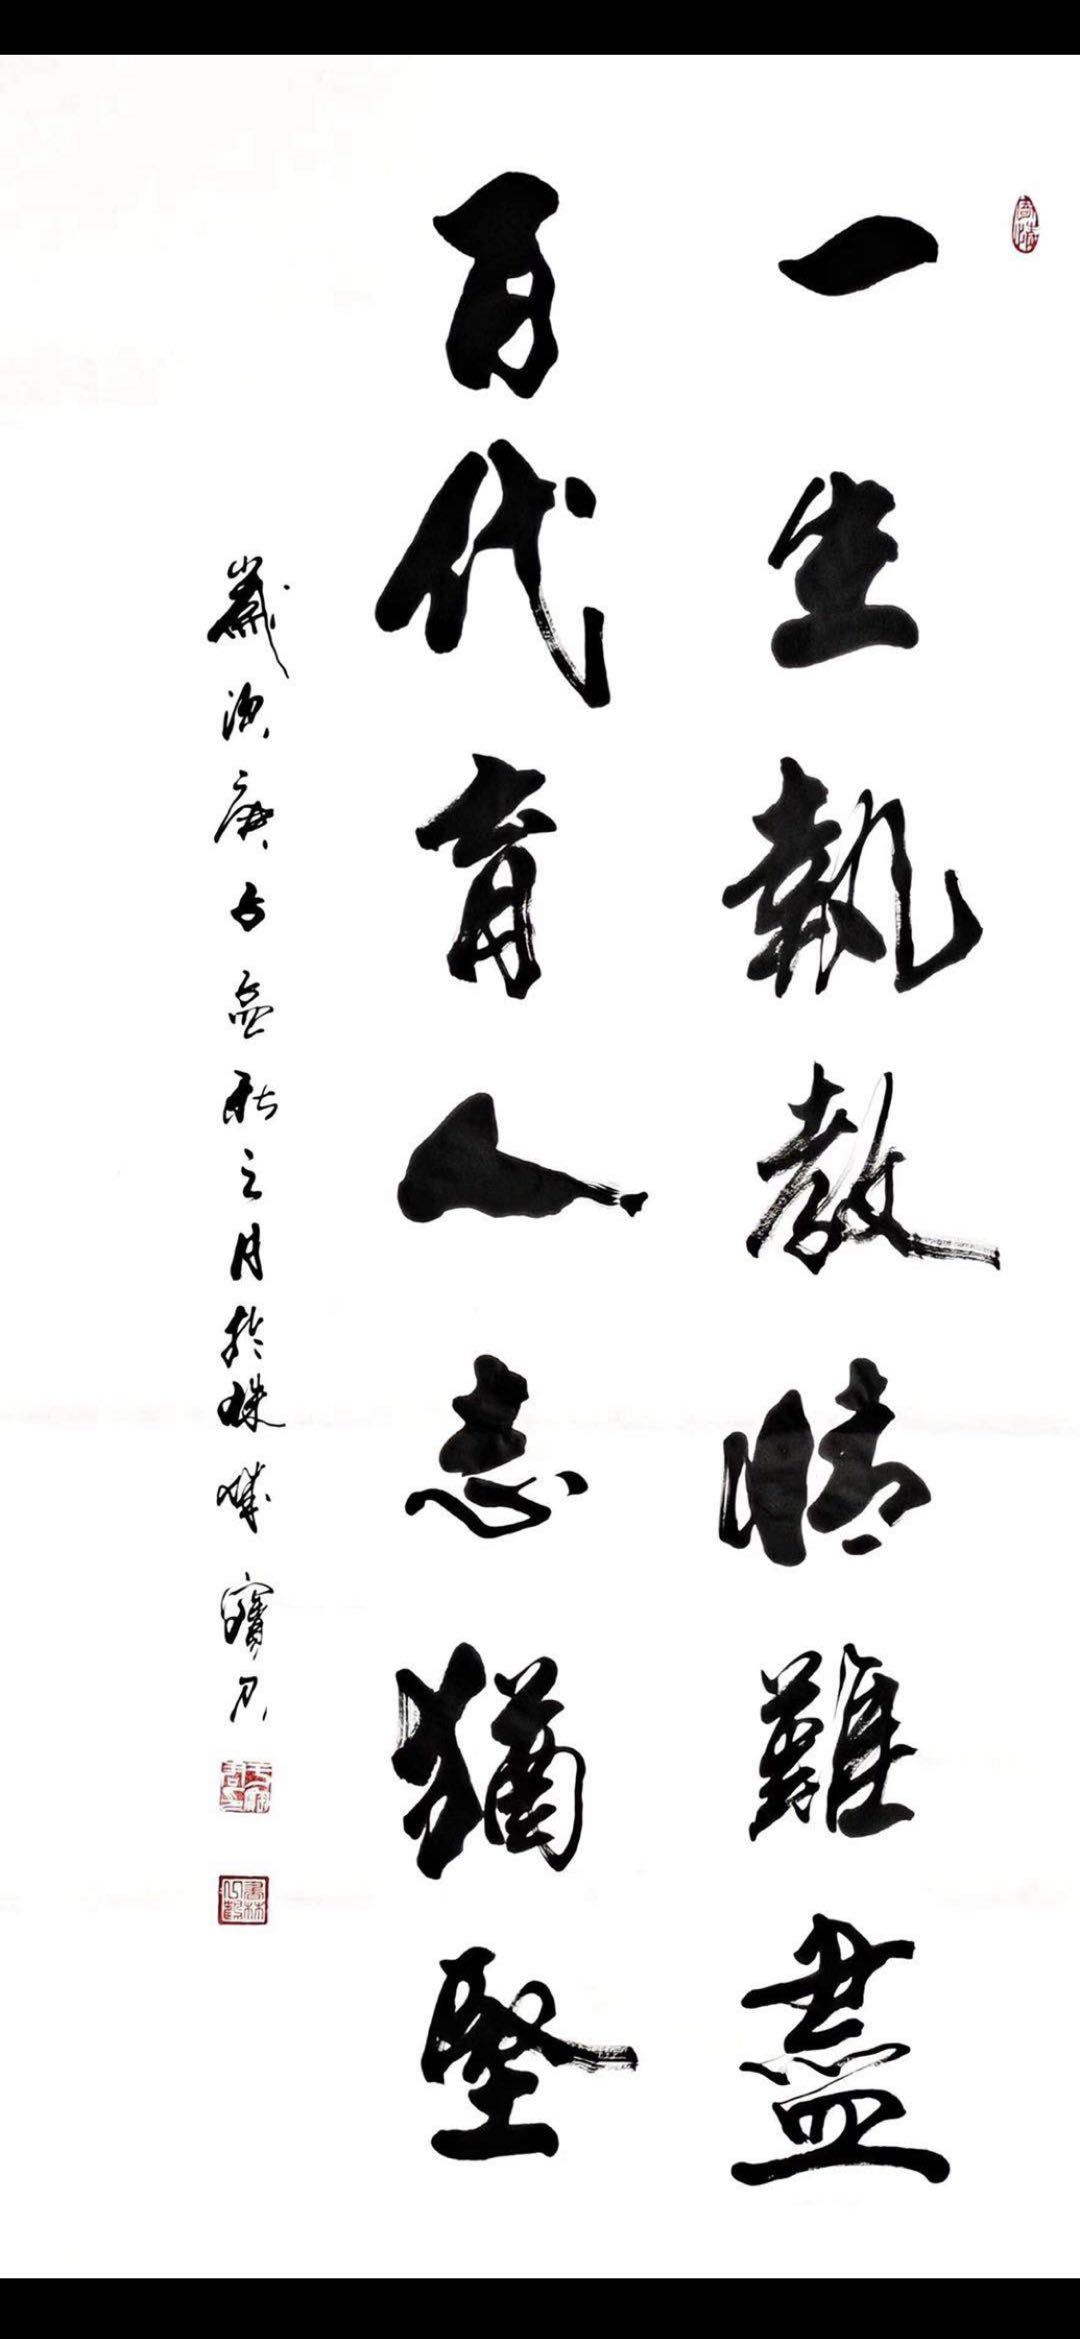 一生執教情難盡
百代育人志猶堅
歲次庚子孟秋之月於珠城寶君